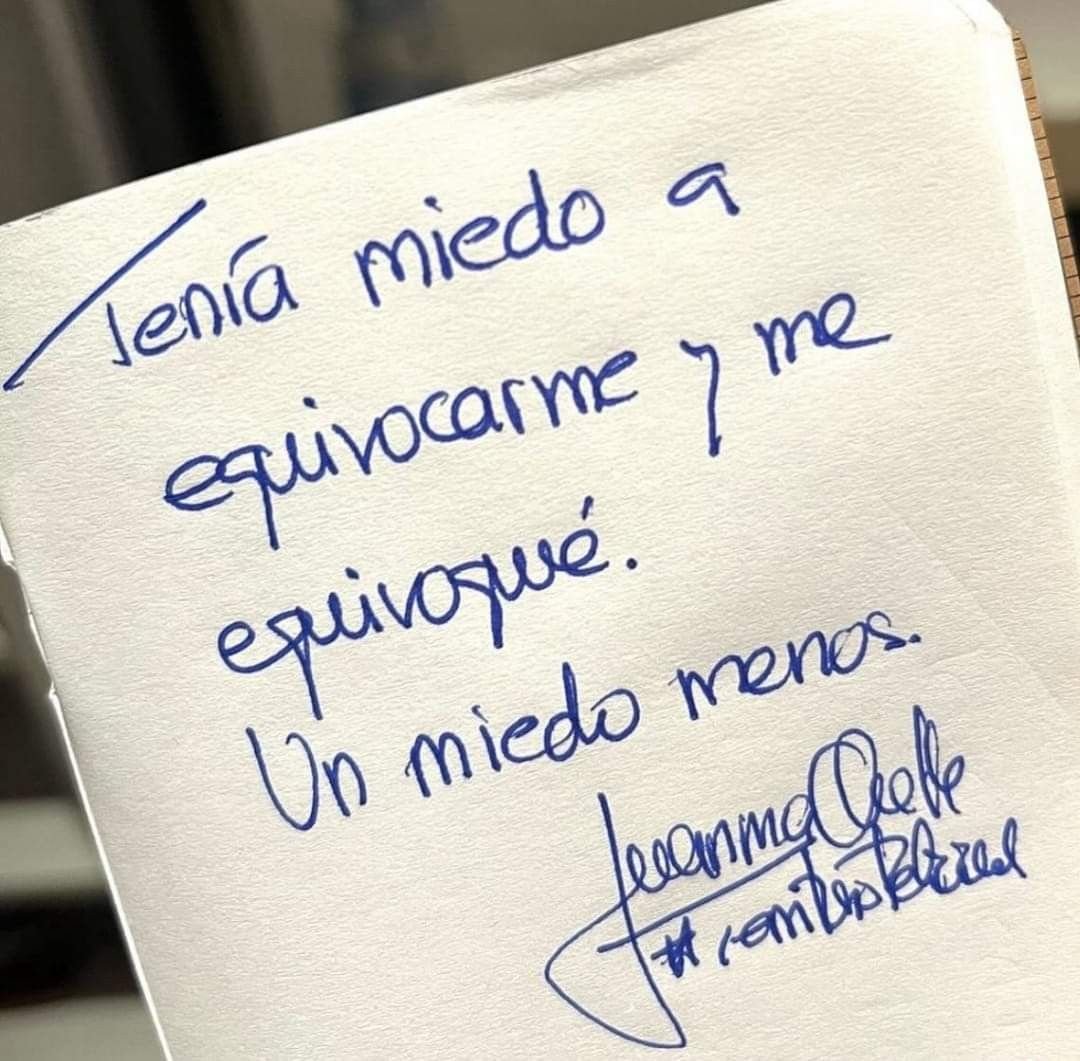 Tenía miedo a
equivocarme y me
equivoqué.
Un miedo menos.
Juanma Quelle